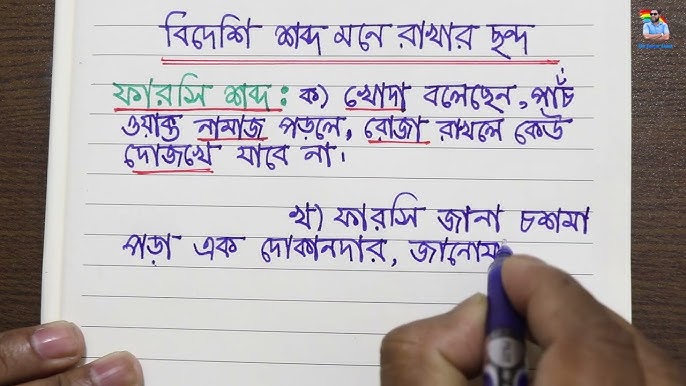 বিদেশি শব্দ মনে রাখার ছন্দ
ফারসি শব্দ : ক) খোদা বলেছেন, পাঁচ
ওয়াক্ত নামাজ পড়লে, রোজা রাখলে কেউ
দোজখে যাবে না।
খ) ফারসি জানা চশমা
পড়া এক দোকানদার, জানোয